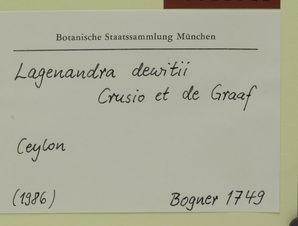 Botanische Staatssammlung München
Lagenandra dewitii
Crusio et de Graaf
Ceylon
(1986) Bogner 1749